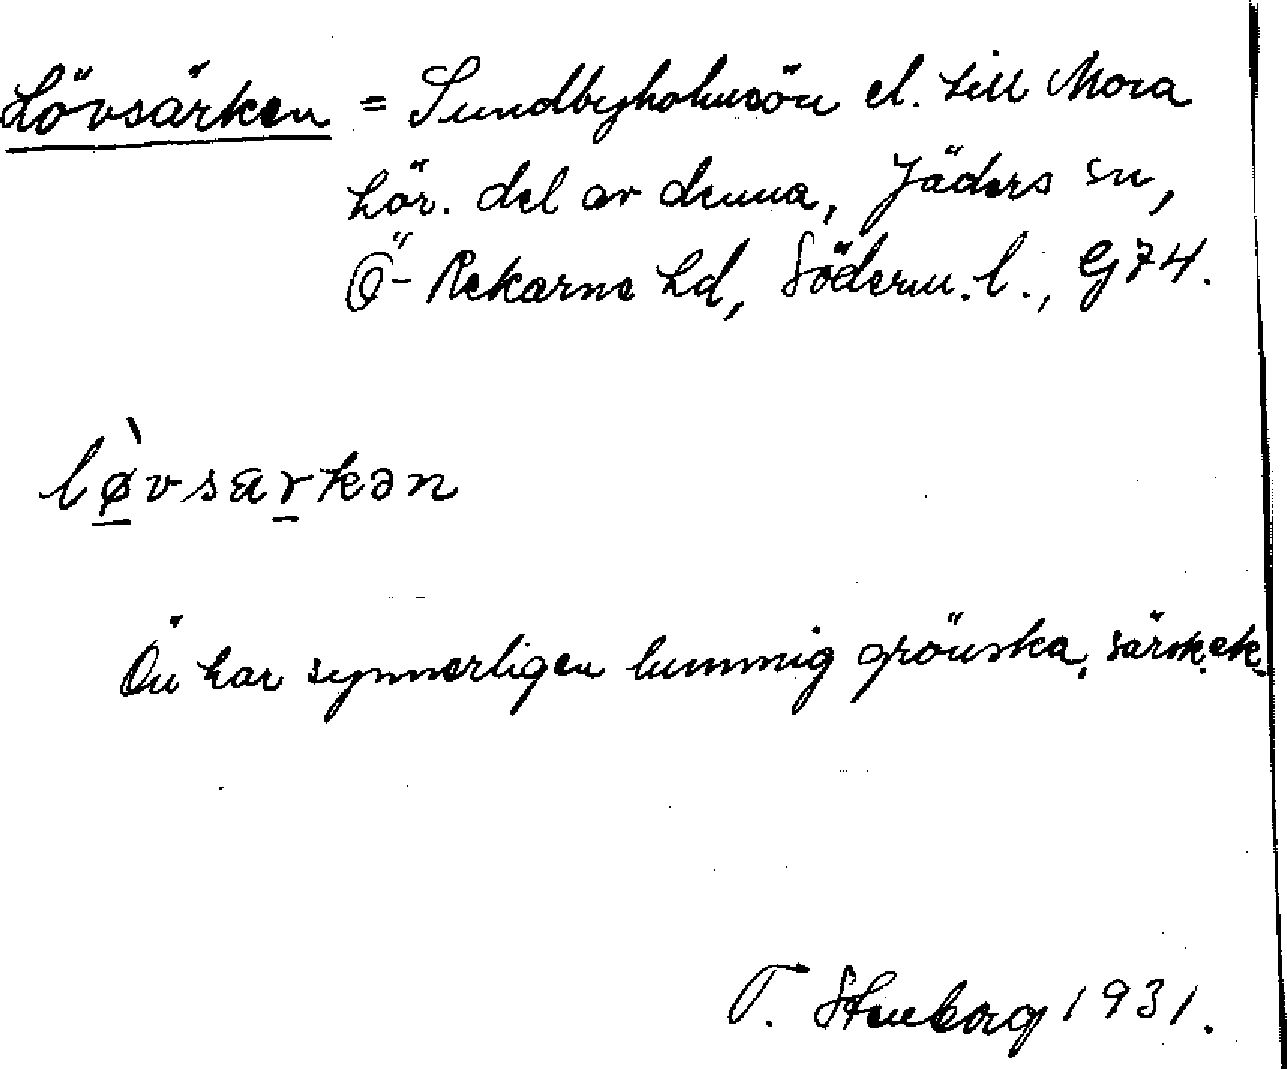 Lövsärken = Sundbyholmsön el. till Mora
hör. del av denna, Jäders sn,
Ö- Rekarne hd, Söderm. l., G 74.
lø̀vsærkən
Ön har synnerligen lummig grönska, särsk. ek.
T. Stenborg 1931.